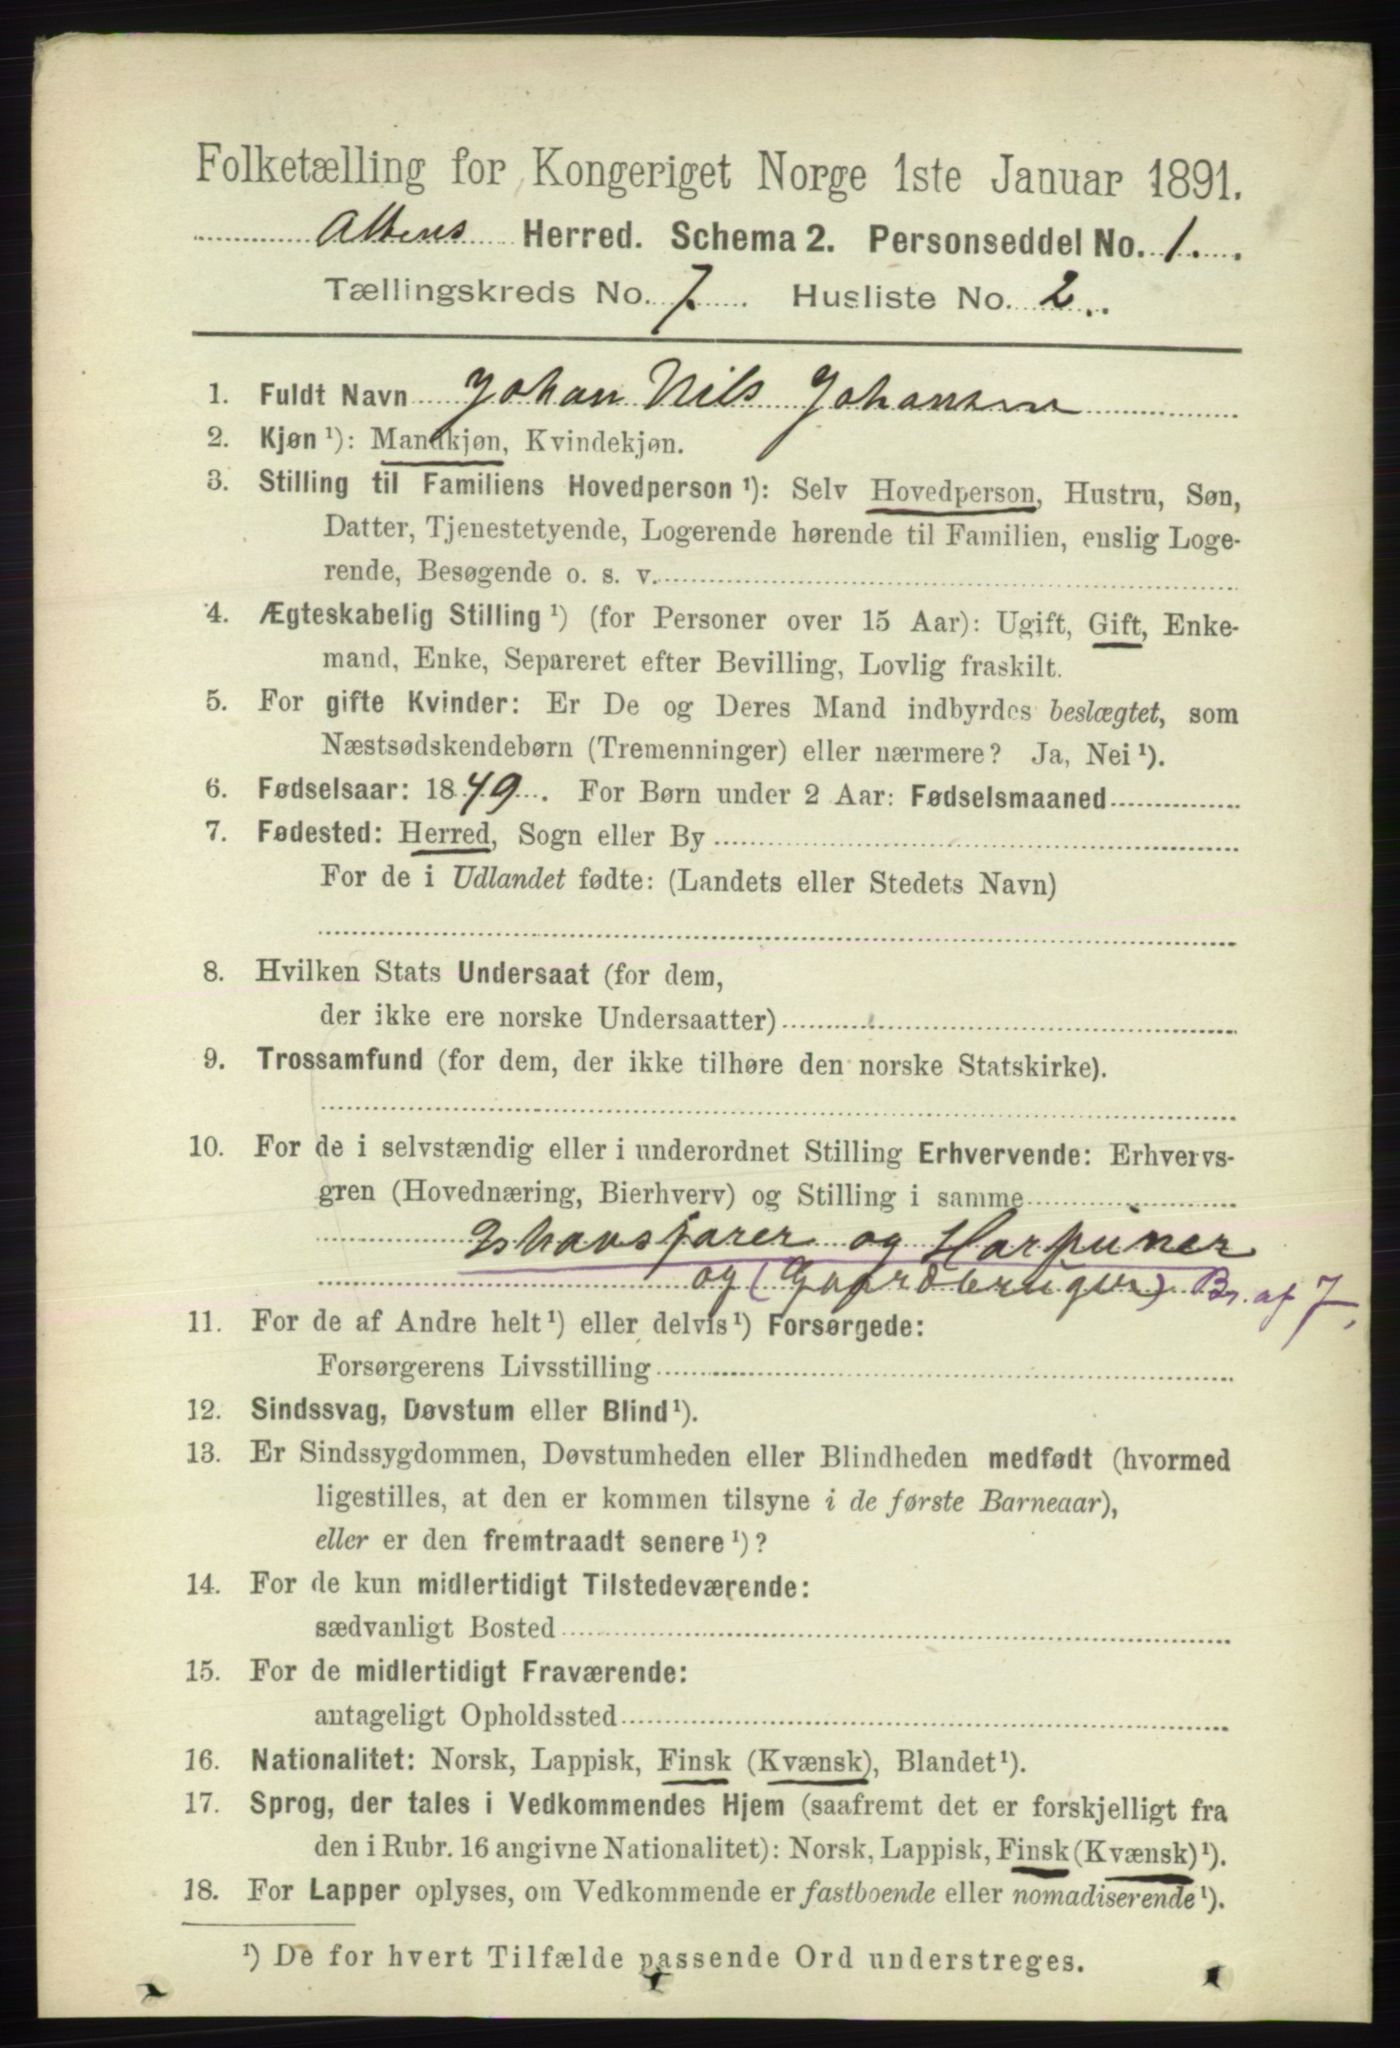 Folketælling for Kongeriget Norge 1ste Januar 1891.
Altens Herred. Schema 2. Personseddel No. 1.
Tællingskreds No. 7. Husliste No. 2.
1. Fuldt Navn Johan Nils Johansen
2. Kjøn ¹): Mandkjøn, Kvindekjøn.
3. Stilling til Familiens Hovedperson ¹): Selv Hovedperson, Hustru, Søn,
Datter, Tjenestetyende, Logerende hørende til Familien, enslig Loge-
rende, Besøgende o. s. v.
4. Ægteskabelig Stilling ¹) (for Personer over 15 Aar): Ugift, Gift, Enke-
mand, Enke, Separeret efter Bevilling, Lovlig fraskilt.
5. For gifte Kvinder: Er De og Deres Mand indbyrdes beslægtet, som
Næstsødskendebørn (Tremenninger) eller nærmere? Ja, Nei ¹).
6. Fødselsaar: 1849. For Børn under 2 Aar: Fødselsmaaned
7. Fødested: Herred, Sogn eller By
For de i Udlandet fødte: (Landets eller Stedets Navn)
8. Hvilken Stats Undersaat (for dem,
der ikke ere norske Undersaatter)
9. Trossamfund (for dem, der ikke tilhøre den norske Statskirke).
10. For de i selvstændig eller i underordnet Stilling Erhvervende: Erhvervs-
gren (Hovednæring, Bierhverv) og Stilling i samme
Ishavsfarer og Harpuner
og (Gaardbruger) Br. af 7,
11. For de af Andre helt ¹) eller delvis ¹) Forsørgede:
Forsørgerens Livsstilling
12. Sindssvag, Døvstum eller Blind ¹).
13. Er Sindssygdommen, Døvstumheden eller Blindheden medfødt (hvormed
ligestilles, at den er kommen tilsyne i de første Barneaar),
eller er den fremtraadt senere ¹)?
14. For de kun midlertidigt Tilstedeværende:
sædvanligt Bosted
15. For de midlertidigt Fraværende:
antageligt Opholdssted
16. Nationalitet: Norsk, Lappisk, Finsk (Kvænsk), Blandet ¹).
17. Sprog, der tales i Vedkommendes Hjem (saafremt det er forskjelligt fra
den i Rubr. 16 angivne Nationalitet): Norsk, Lappisk, Finsk (Kvænsk) ¹).
18. For Lapper oplyses, om Vedkommende er fastboende eller nomadiserende ¹).
¹) De for hvert Tilfælde passende Ord understreges.